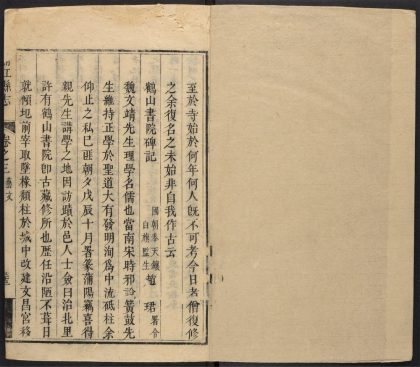 至於寺始於何年何人旣不可考今日老僧復修
之余復名之未始非自我作古云
鶴山書院碑記
國朝奉天鑲
白旗監生
趙珺
署令
魏文靖先生理學名儒也當南宋時邪說簧鼓先
生維持正學於聖道大有發明洵為中流砥柱余
仰止之私已匪朝夕戊辰十月署篆蒲陽竊喜得
親先生講學之地因訪蹟於邑人士僉曰治北里
許有鶴山書院卽古藏修所也歷任沿陋不葺日
就傾圯前宰取墜椽頹柱於城中改建文昌宮移
江縣志
卷之三
藝文